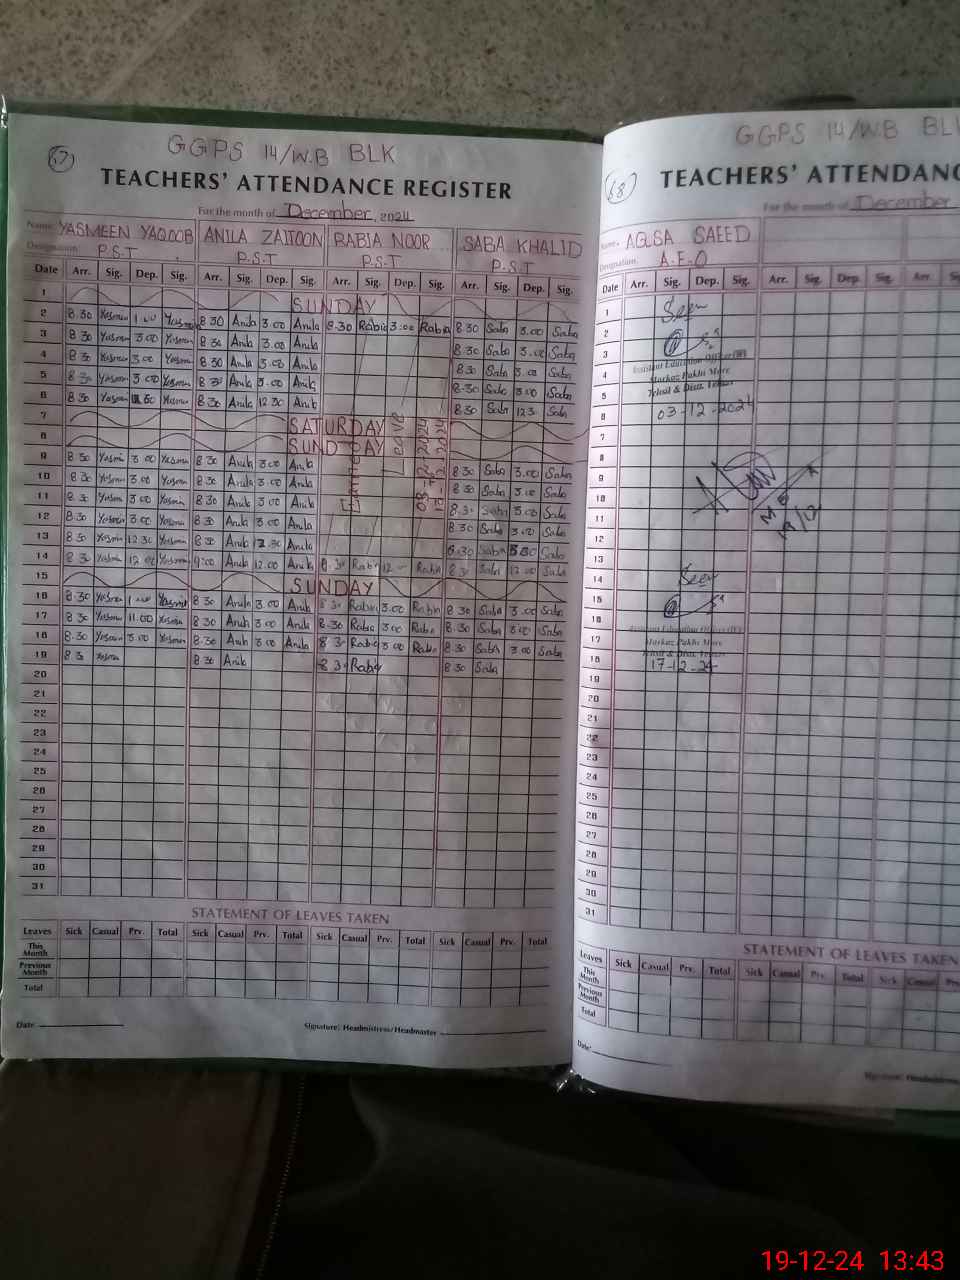 67
GGPS 14/W.B BLK
TEACHERS' ATTENDANCE REGISTER
For the month of December, 2024
Name: YASMEEN YAQOOB ANILA ZAITOON RABIA NOOR SABA KHALID
Designation: P.S.T P.S.T P.S.T P.S.T
Date Arr. Sig. Dep. Sig. Arr. Sig. Dep. Sig. Arr. Sig. Dep. Sig. Arr. Sig. Dep. Sig.
1 SUNDAY
2 8.30 Yasmin 1.00 Yasmin 8 30 Anila 3.00 Anila 8.30 Rabia 3:00 Rabia 8.30 Saba 3.00 Saba
3 8.30 Yasmin 3.00 Yasmin 8 30 Anila 3.00 Anila 8.30 Saba 3.00 Saba
4 8 30 Yasmin 3.00 Yasmin 8 30 Anila 3.00 Anila 8.30 Saba 3.00 Saba
5 8.30 Yasmin 3.00 Yasmin 8 30 Anila 3.00 Anila 8.30 Saba 3.00 Saba
6 8.30 Yasmin Yasmin 8.30 Anila 12 30 Anila 8.30 Saba 12 3 Saba
7 SATURDAY
8 SUNDAY
9 8 30 Yasmin 3 00 Yasmin 8 30 Anila 3.00 Anila 8.30 Saba 3.00 Saba
10 8 30 Yasmin 3.00 Yasmin 8 30 Anila 3.00 Anila 8 30 Saba 3.00 Saba
11 8 30 Yasmin 3.00 Yasmin 8 30 Anila 3.00 Anila 8.30 Saba 3.00 Saba
12 8.30 Yasmin 3.00 Yasmin 8 30 Anila 3.00 Anila 8.30 Saba 3.00 Saba
13 8.30 Yasmin 12 30 Yasmin 8 30 Anila 12 30 Anila 8.30 Saba Saba
14 8 30 Yasmin 12.00 Yasmin 9:00 Anila 12.00 Anila 8.30 Rabia 12 Rabia 8 3 Saba 12 00 Saba
Leave
03-12-2024
13-12-2024
15 SUNDAY
16 8.30 Yasmin 1.00 Yasmin 8.30 Anila 3.00 Anila 8 3 Rabia 3.00 Rabia 8 30 Saba 3.00 Saba
17 8.30 Yasmin 11.00 Yasmin 8.30 Anila 3.00 Anila 8.30 Rabia 3.00 Rabia 8.30 Saba 3.00 Saba
18 8.30 Yasmin 3.00 Yasmin 8.30 Anila 3.00 Anila 8 3 Rabia 3.00 Rabia 8.30 Saba 3 00 Saba
19 8 30 Yasmin 8 30 Anila 8 3 Rabia 8 30 Saba
20
21
22
23
24
25
26
27
28
29
30
31
STATEMENT OF LEAVES TAKEN
Leaves Sick Casual Prv. Total Sick Casual Prv. Total Sick Casual Prv. Total Sick Casual Prv. Total
This Month
Previous Month
Total
Date Signature: Headmistress/Headmaster
68
GGPS 14/W.B BL
TEACHERS' ATTENDANC
For the month of December
Name: AQSA SAEED
Designation. A.E.O
Date Arr. Sig. Dep. Sig. Arr. Sig. Dep. Sig. Arr. Sig.
1
2
3
4
5
6
7
8
9
10
11
12
13
14
15
16
17
18
19
20
21
22
23
24
25
26
27
28
29
30
31
Seen
Assistant Education Officer (W)
Markaz Pakhi More
Tehsil & Distt. Vehari
03-12-2024
Seen
Assistant Education Officer
Markaz Pakhi More
Tehsil & Distt. Vehari
17-12-24
STATEMENT OF LEAVES TAKEN
Leaves Sick Casual Prv. Total Sick Casual Prv. Total Sick Casual
This Month
Previous Month
Total
Date:
Signature: Headmistress
19-12-24 13:43